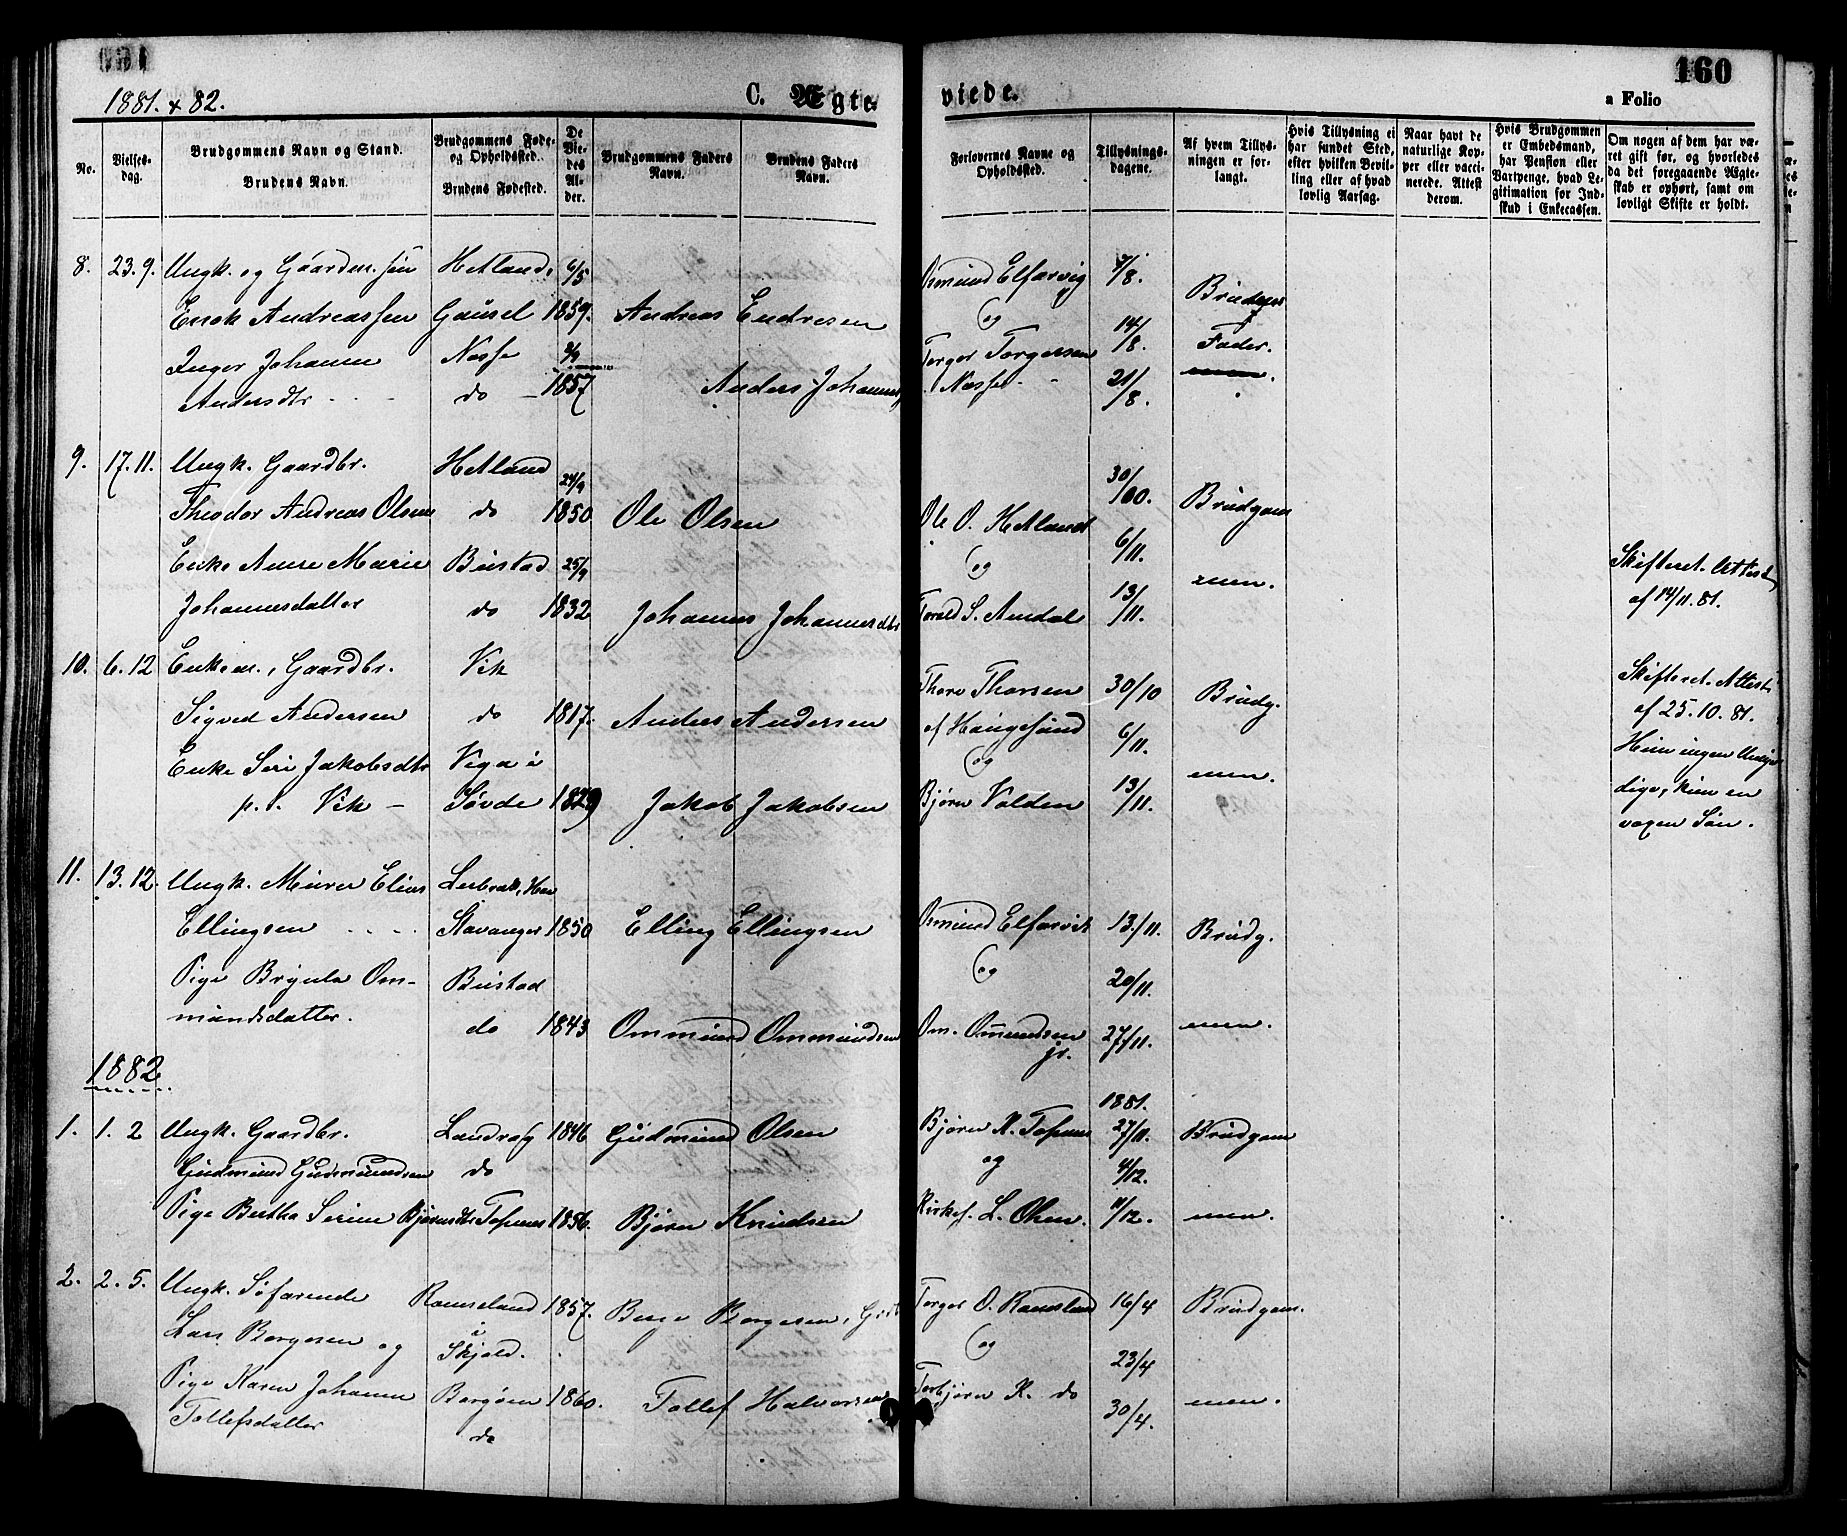 1881. & 82.
C. Ægte-
viede.
160
a Folio
No.
Vielses-
dag.
Brudgommens Navn og Stand.
Brudens Navn.
Brudgommens Føde-
og Opholdssted.
Brudens Fødested.
De
Vie-
des
Al-
der.
Brudgommens Faders
Navn.
Brudens Faders
Navn.
Forlovernes Navne og
Opholdssted.
Tillysnings-
dagene.
Af hvem Tillys-
ningen er for-
langt.
Hvis Tillysning ei
har fundet Sted,
efter hvilken Bevil-
ling eller af hvad
lovlig Aarsag.
Naar havt de
naturlige Kop-
per eller vacci-
nerede. Attest
derom.
Hvis Brudgommen
er Embedsmand,
har Pension eller
Vartpenge, hvad Le-
gitimation for Ind-
skud i Enkecassen.
Om nogen af dem har væ-
ret gift før, og hvorledes
da det foregaaende Ægte-
skab er ophørt, samt om
lovligt Skifte er holdt.
8. 23.9. Ungk. og Gaardm. Søn Hetland, 6/5 Osmund Elfarvig 7/8.
Enok Andreassen Gausel 1859. Andreas Endresen og 14/8. Brudens
Inger Johanne Næsse Torger Torgersen Fader.
Andersdtr do 1857 Anders Johannes Næsse 21/8. men.
9. 17.11. Ungk. Gaardbr. Hetland 24/9 30/10.
Theodor Andreas Olsen do 1850 Ole Olsen Ole O. Hetland Brudgom
Enke Anne Marie Bustad 25/9 og 6/11. men. Skifteret. Attest
Johannesdatter do 1832 Johannes Johannesdtr Torald S. Amdal 13/11. af 14/11.81.
10. 6.12 Enkem., Gaardbr. Vik Thore Thorsen 30/10 Brudg. Skifteret. Attest
Sigved Andersen do 1817. Anders Andersen af Haugesund 6/11. af 25.10.81.
Enke Seri Jakobsdtr Vega i og men. Hun ingen
p. t. Vik – Søvde 1829 Jakob Jakobsen Bjørn Valden 13/11. dige, kun en
voxen Søn.
11. 13.12. Ungk. Murer Elias
Ellingsen Stavanger 1850 Elling Ellingsen Osmund Elfarvik 13/11. Brudg.
Pige Brynla Om- Bustad og 20/11.
mundsdatter. do 1843 Ommund Ommundsen Om. Omundsen jr. 27/11. men.
1882
1881.
1. 1. 2 Ungk. Gaardbr. 1846 Gudmund Olsen Bjørn K. Tofsnes 27/11. Brudgom
Gudmund Gudmundsen do og 4/12.
Pige Bertha Serine Bjørnsdtr Tofsnes 1856. Bjørn Knudsen Kirkes. L. Olsen. 11/12. men.
2. 2. 5. Ungk. Søfarende Ramsland 1857. Berge Bergesen, Torger O. Ramsland 16/4 Brudgom.
Lars Bergesen og i Skjold. og 23/4
Pige Karen Johanne Borgøen 1860. Tollef Halvorsen Torbjørn K. do 30/4. men.
Tollefsdatter do